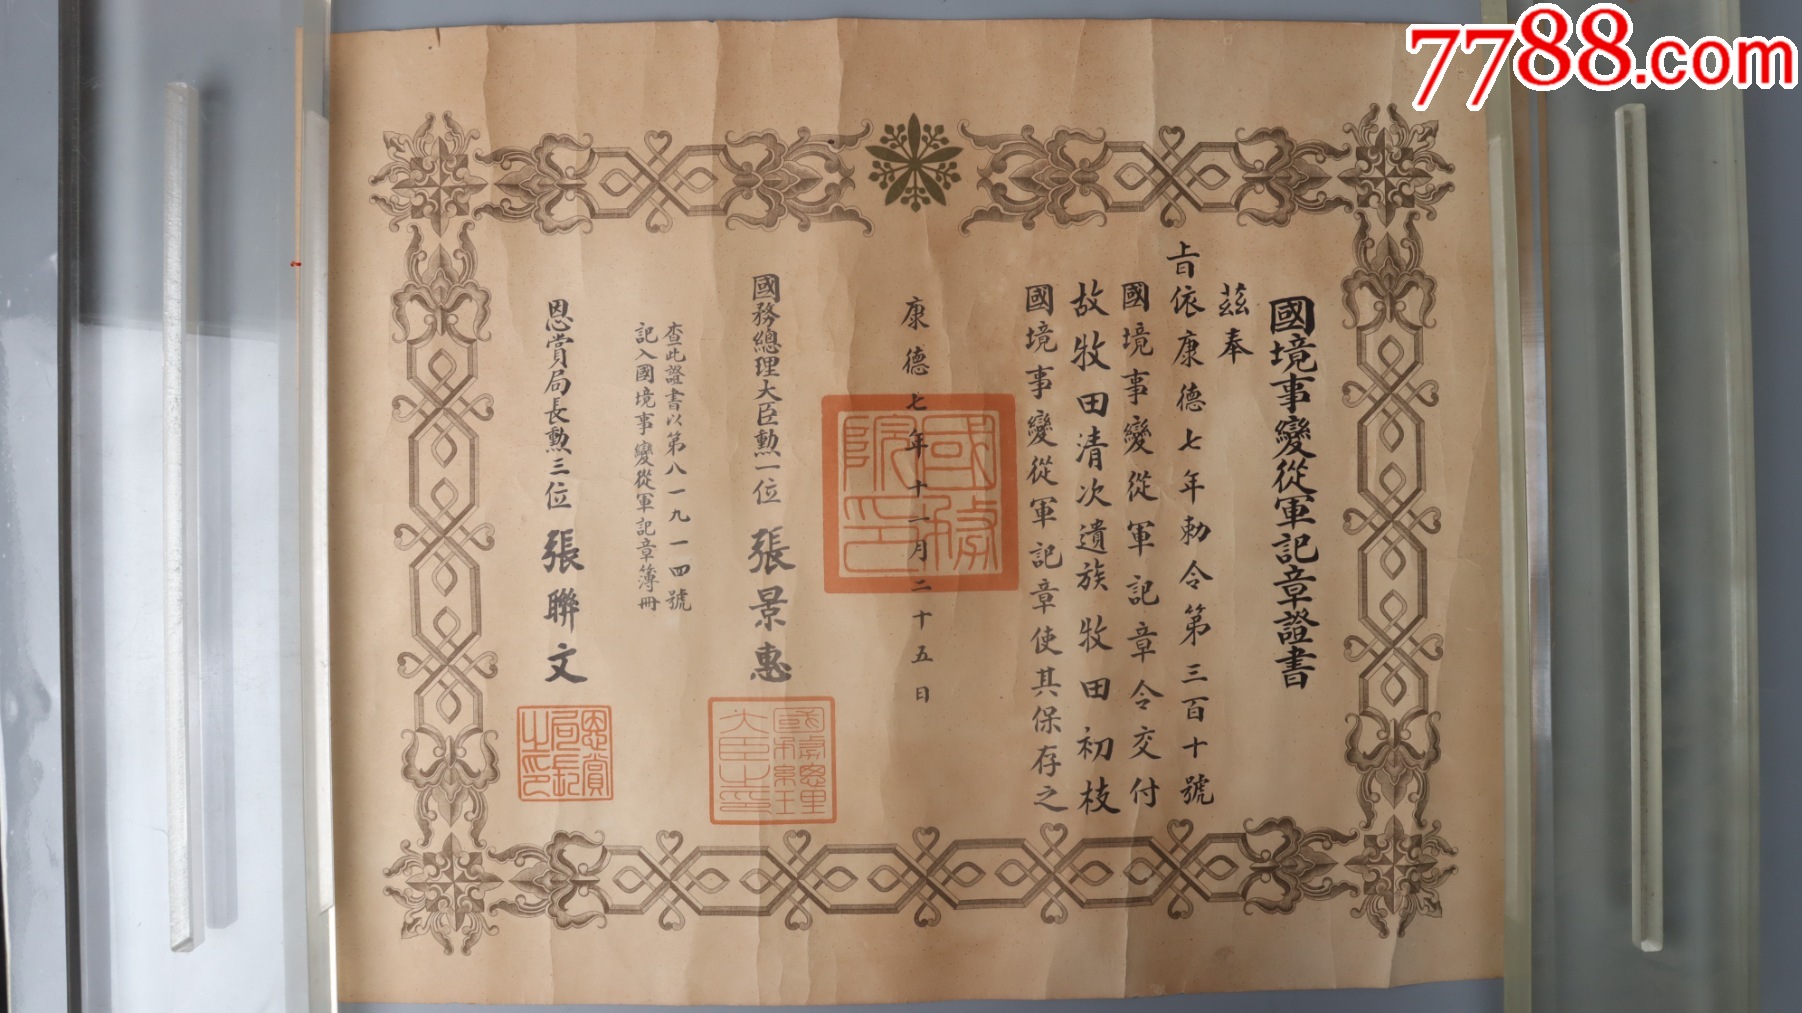 7788.com
國境事變從軍記章證書
茲奉
旨依康德七年勅令第三百十號
國境事變從軍記章令交付
故牧田清次遺族牧田初枝
國境事變從軍記章使其保存之
康德七年十一月二十五日
國務院印
國務總理大臣勲一位 張景惠
國務總理大臣之印
查此證書以第八一九一四號
記入國境事變從軍記章簿冊
恩賞局長勲三位 張聯文
恩賞局長之印